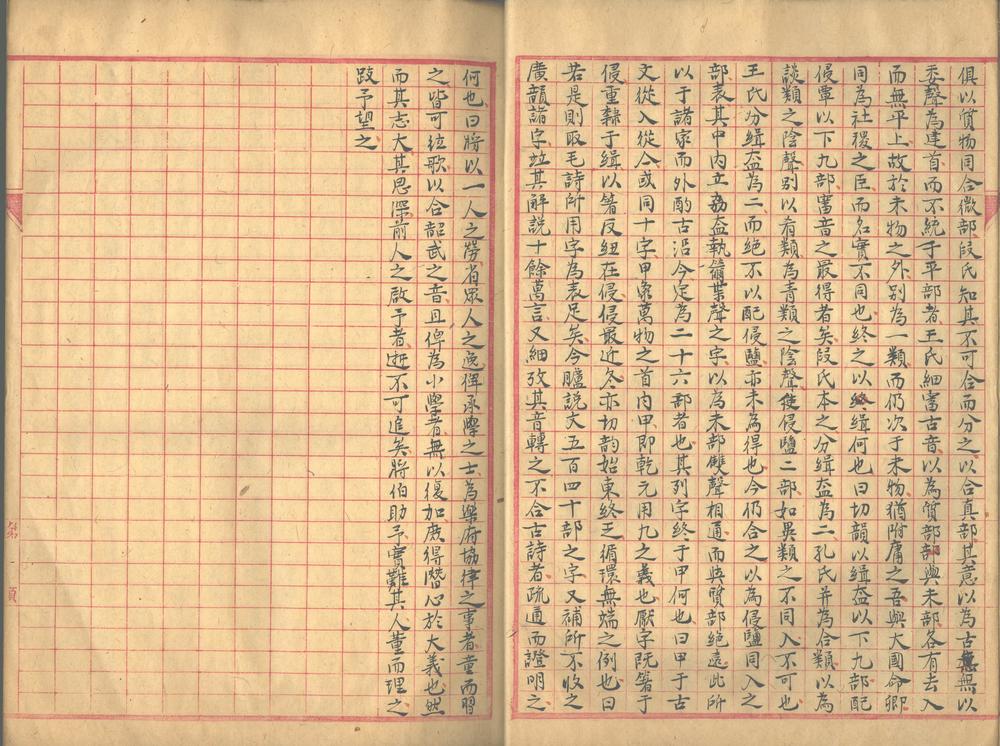 俱以質物同合微部段氏知其不可合而分之以合真部其意以為古無以
委聲為建首而不統于平部者王氏細審古音以為質部部與未部各有去入
而無平上故於未物之外別為一類而仍次于未物猶附庸之吾與大國命卿
同為社稷之臣而名實不同也終之以終緝何也曰切韻以緝盍以下九部配
侵覃以下九部審音之最得者矣段氏本之分緝盍為二孔氏并為合類以為
談類之陰聲別以肴類為青類之陰聲使侵鹽二部如異類之不同入不可也
王氏分緝盍為二而絕不以配侵鹽亦未為得也今仍合之以為侵鹽同入之
部表其中內立劦盍執籋枼聲之字以為未部雙聲相通而與質部絕遠此所
以于諸家而外酌古沿今定為二十六部者也其列字終于甲何也曰甲于古
文從入從人或同十字甲象萬物之首內甲即乾元用九之義也厭字既箸于
侵重隸于緝以箸反紐在侵侵最近冬亦切韵始東終乏循環無端之例也曰
若是則取毛詩所用字為表足矣今臚說文五百四十部之字又補所不收之
廣韻諸字竝其解說十餘萬言又細攷其音轉之不合古詩者疏通而證明之
何也曰將以一人之勞省眾人之逸俾承學之士為樂府協律之事者童而習
之皆可弦歌以合韶武之音且俾為小學者無以復加庶得潛心於大義也然
而其志大其思深前人之啟予者逝不可追矣將伯助予實難其人董而理之
跂予望之
第 頁